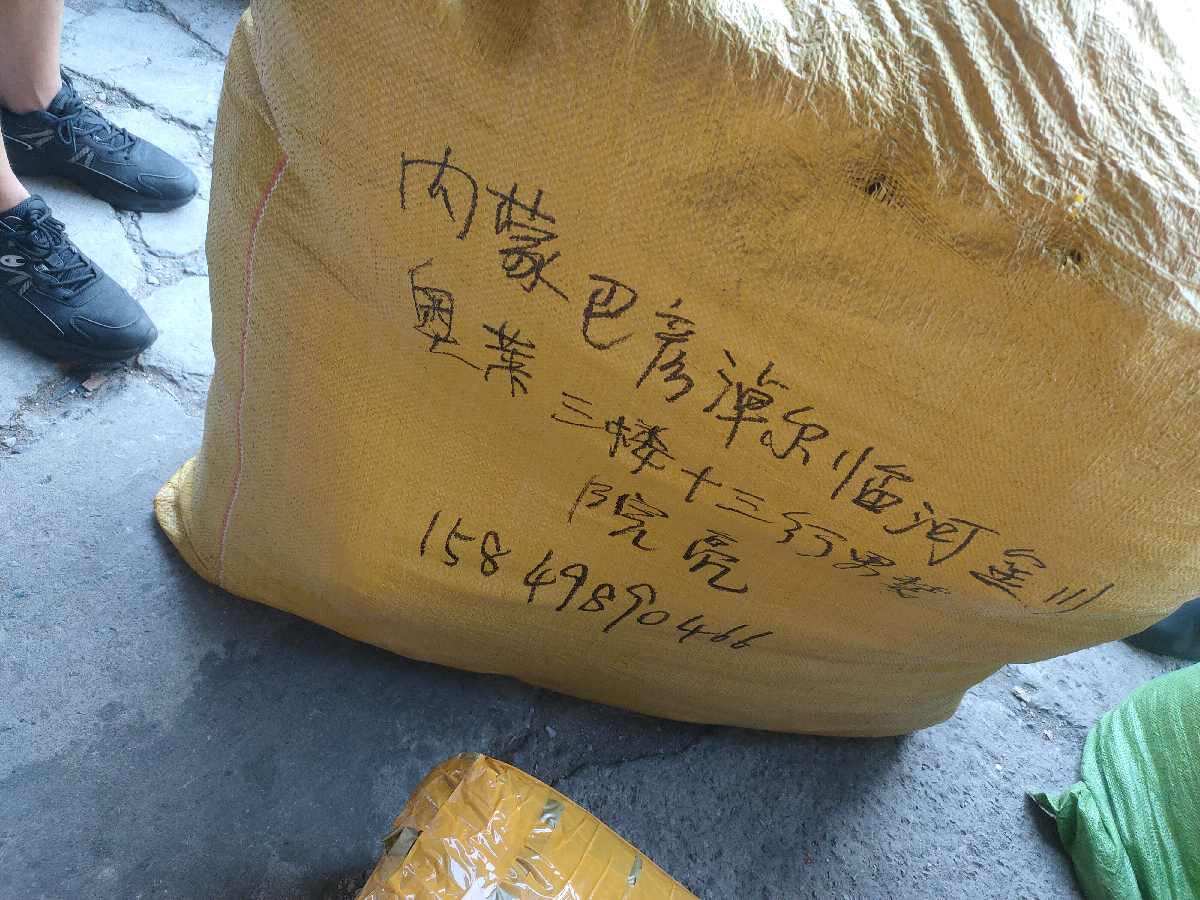 内蒙巴彦淖尔临河金川
奥莱三楼十三行男装
院亮
15849890466